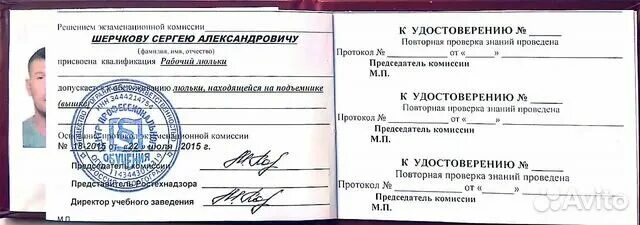 Решением экзаменационной комиссии
ШЕРЧКОВУ СЕРГЕЮ АЛЕКСАНДРОВИЧУ
(фамилия, имя, отчество)
присвоена квалификация Рабочий люльки
допускается к обслуживанию люльки, находящейся на подъемнике
(вышке)
Основание протокол экзаменационной комиссии
№ 18-2015 от «22» июля 2015 г.
Председатель комиссии
Представитель Ростехнадзора
Директор учебного заведения
М.П.
ОБУЧЕНИЯ
К УДОСТОВЕРЕНИЮ №
Повторная проверка знаний проведена
Протокол № от « »
Председатель комиссии
М.П.
К УДОСТОВЕРЕНИЮ №
Повторная проверка знаний проведена
Протокол № от « »
Председатель комиссии
М.П.
К УДОСТОВЕРЕНИЮ №
Повторная проверка знаний проведена
Протокол № от « »
Председатель комиссии
М.П.
Avito